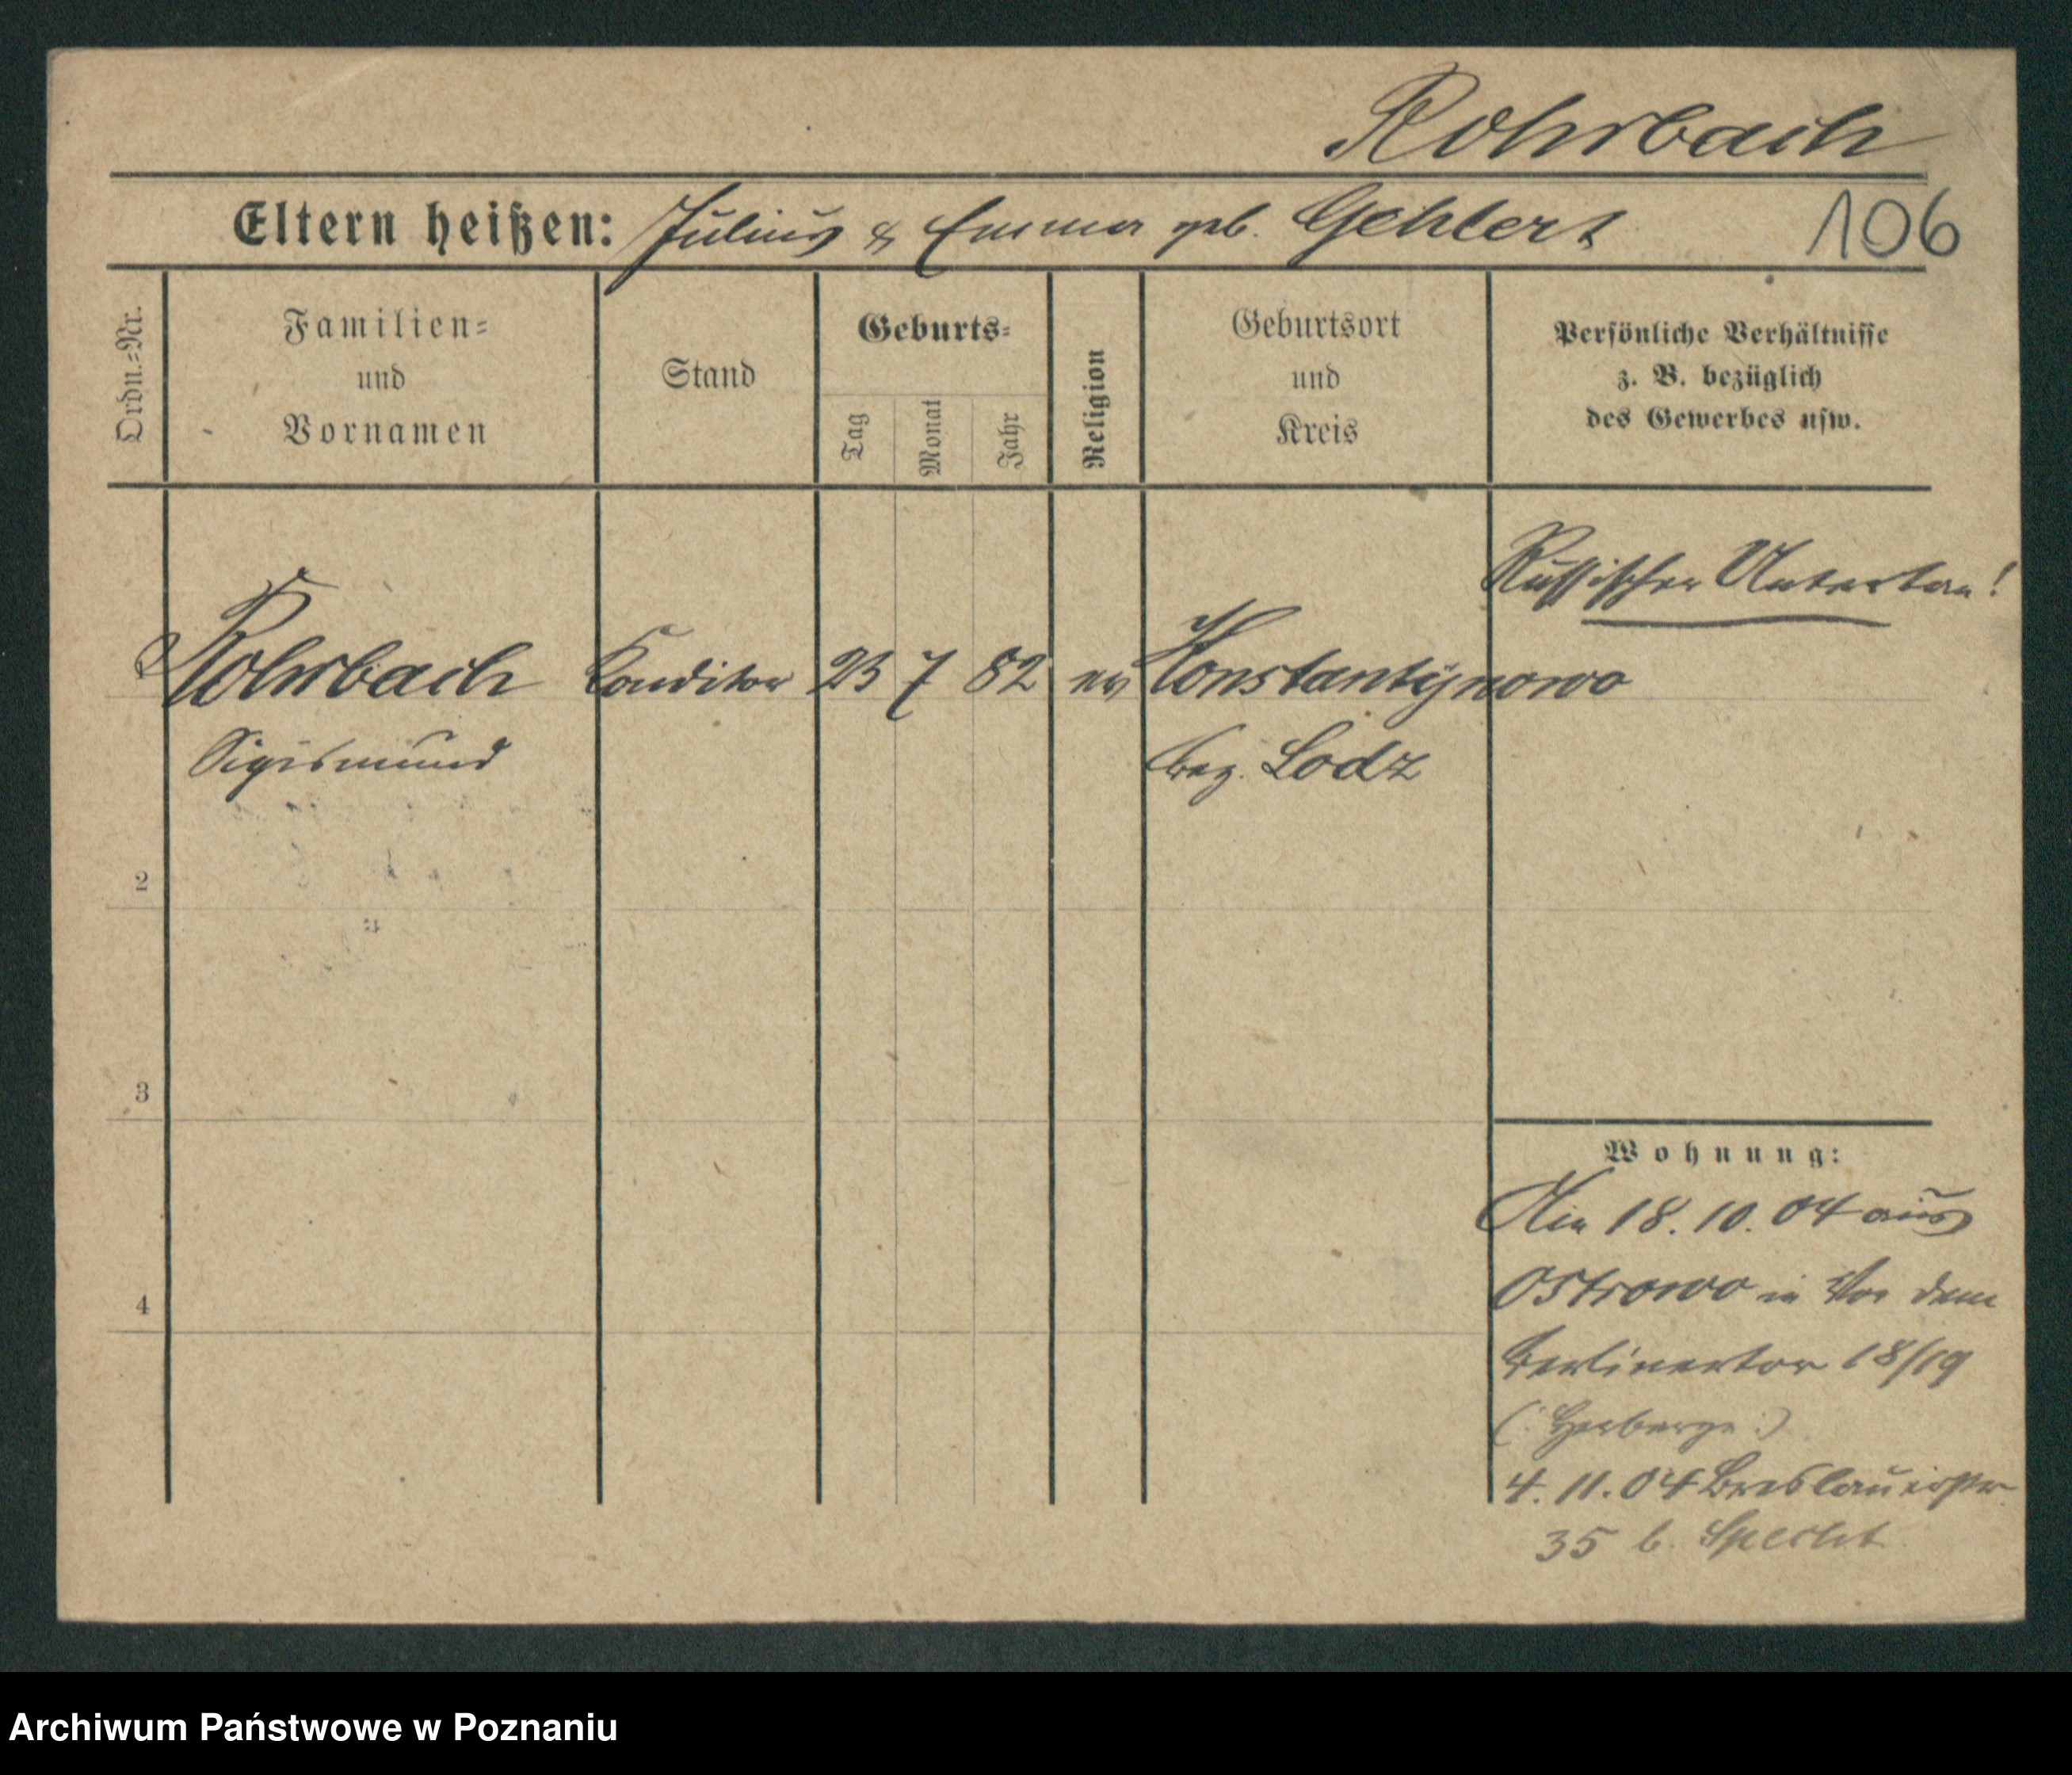 Rohrbach
Eltern heißen: Julius & Emma geb. Gehlert 106
Ordn.=Nr.
Familien=
und
Vornamen
Stand
Geburts=
Tag
Monat
Jahr
Religion
Geburtsort
und
Kreis
Persönliche Verhältnisse
z. B. bezüglich
des Gewerbes usw.
Russischer Untertan!
Rohrbach Konditor 23 7 82 ev Konstantynowo
Sigismund Bez. Lodz
2
3
4
Wohnung:
18. 10. 04 aus
Ostrowo in Vor dem
Berlinertor 18/19
(: Herberge :)
4. 11. 04 Breslauerstr
35 b. Specht
Archiwum Państwowe w Poznaniu